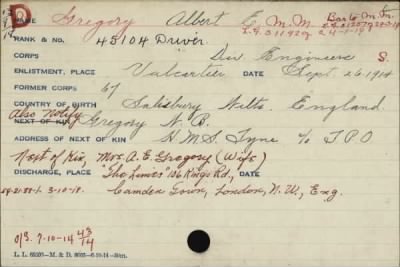 D
NAME Gregory Albert E. M.M. Bar to M.M.
RANK & NO. 45104 Driver L.G. 31142
CORPS Div Engineers S.
ENLISTMENT, PLACE Valcartier DATE Sept 26 1914
FORMER CORPS 67
COUNTRY OF BIRTH Salisbury Wilts. England
Also Notify
NEXT OF KIN Gregory N. B.
ADDRESS OF NEXT OF KIN H.M.S. Tyne c/o G.P.O
Next of Kin, Mrs. A. E. Gregory (Wife)
DISCHARGE, PLACE "The Limes" 106 Kings Rd, DATE
Camden Town, London, N.W., Eng.
O/S. 7-10-14 43/14
L. L. 69205—M. & D. 8035—6-10-14—3m.